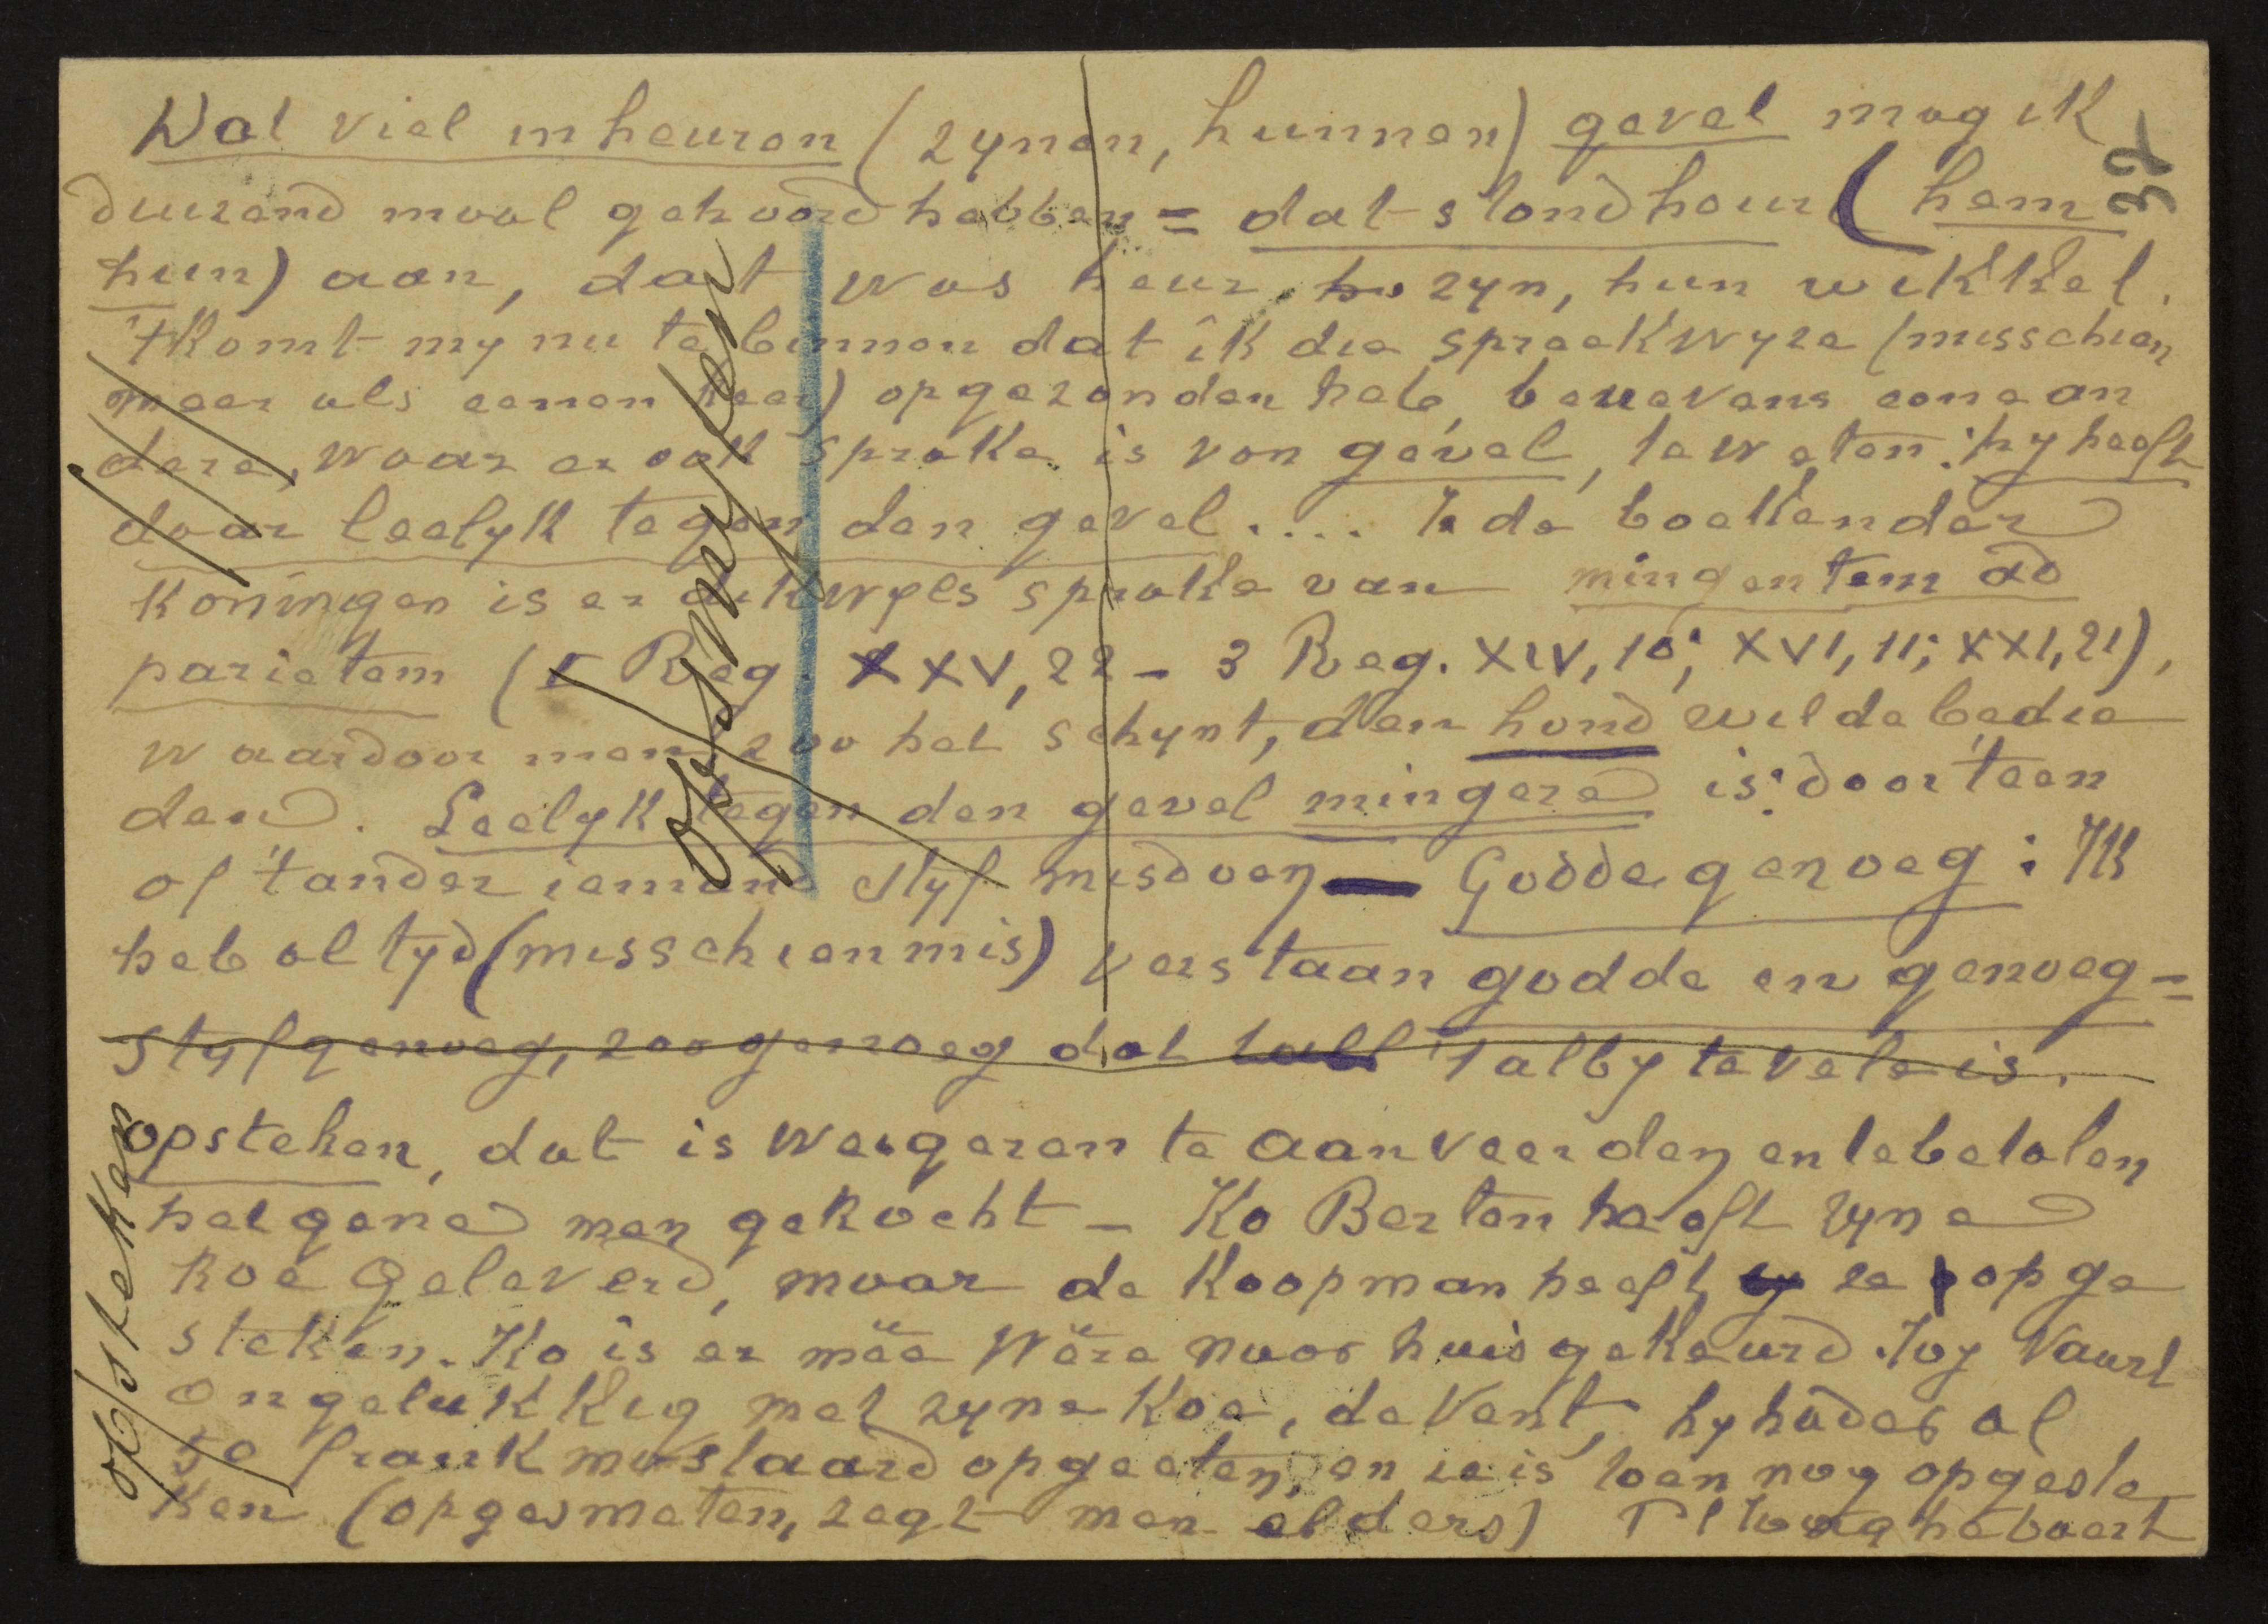 Dat viel in heuren (zynen, hunnen) gevel mag ik
32
duizend maal gehoord hebben = dat stond heur (hem
hun) aan, dat was heur, zyn, hun wikkel.
'tKomt my nu te binnen dat ik die spreekwyze (misschien
meer als eenen keer) opgezonden heb, benevens eene an
dere, waar er ook sprake is van gevel, te weten: hy heeft
daar leelyk tegen den gevel.... In de boeken der
Koningen is er dikwyls sprake van mingentem ad
parietem (I Reg. XXV, 22 - 3 Reg. XIV, 10; XVI, 11; XXI, 21),
waardoor men, zoo het schynt, den hond wilde bedie
den. Leelyk tegen den gevel mingere is: door 't een
of 't ander iemand styf misdoen — Godde genoeg: Ik
heb altyd (misschien mis) verstaan godde en genoeg =
styf genoeg, zoo genoeg dat 't alby te vele is.
opsteken, dat is weigeren te aanveerden en te betalen
hetgene men gekocht - Ko Berten heeft zyne
koe geleverd, maar de koopman heeft ze opge
steken. Ko is er mëe wëre naar huis gekeurd. Joy Vaart
ongelukkig met zyne koe, de Vent, hy had er al
50 frank mostaard opgeeten, en ze is toen nog opgeste
ken (opgesmeten, zegt men elders)
opsmyten
opsteken